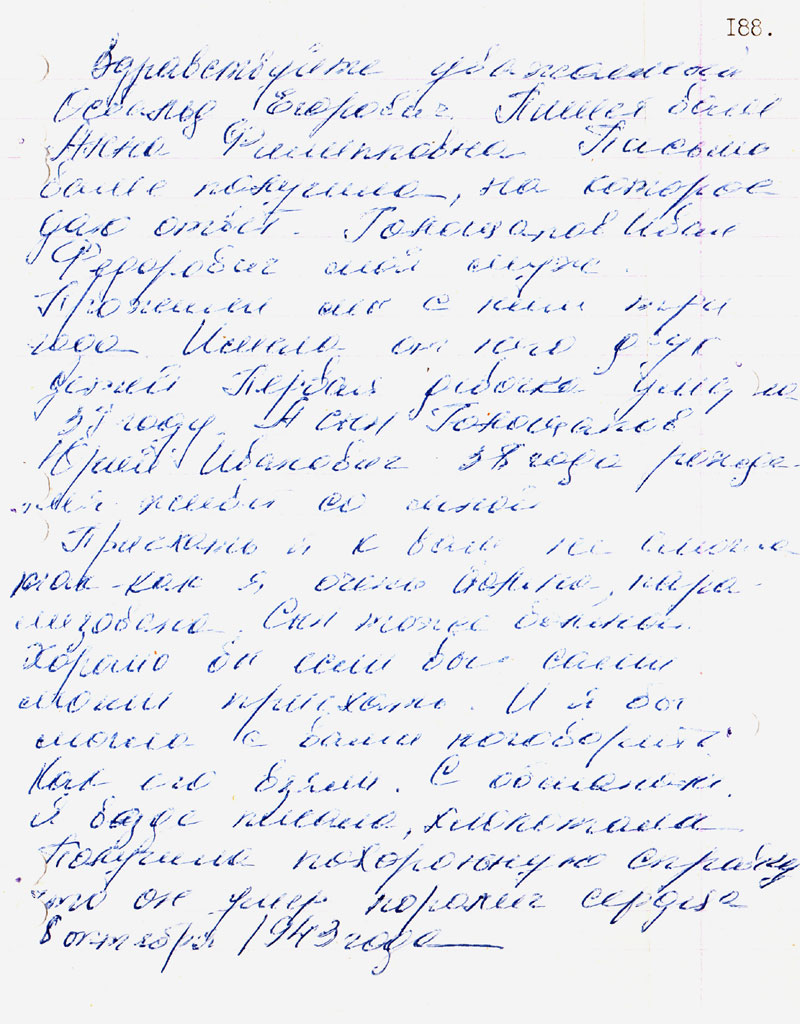 188.
Здравствуйте уважаемый
Освальд Егорович Пишет вам
Анна Филипповна Письмо
ваше получила, на которое
даю ответ. Голощапов Иван
Федорович мой муж.
Прожили мы с ним три
года Имела от него двух
детей Первая девочка умерла
37 году А сын Голощапов
Юрий Иванович 38 года рожде-
ния живёт со мной
Приехать я к вам не смогла
так-как я очень больна, пара-
лизована. Сын тоже больной.
Хорошо бы если бы сами
могли приехать. И я бы
могла с вами поговорить
Как его взяли. С обманом.
Я везде писала, хлопотала
Получила похоронную справку
что он умер порамич сердца
8 октября 1943 года